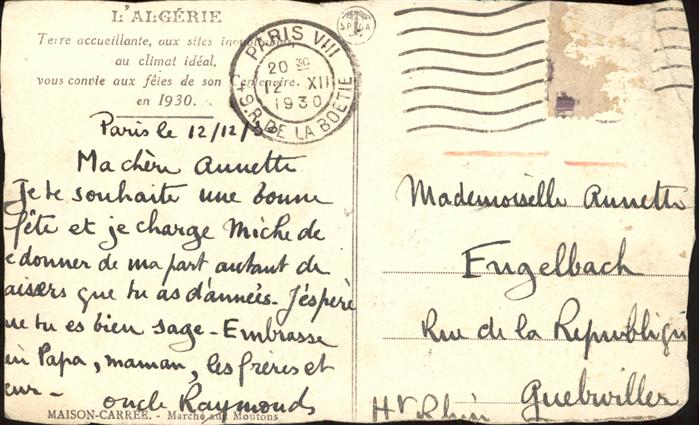 L'ALGÉRIE
Terre accueillante, aux sites
au climat idéal,
vous convie aux fêtes de son Centenaire.
en 1930.
SPGA
PARIS VIII
20 30
12 XII
1930
R. DE LA BOËTIE
Paris le 12/12/30
Ma chère Annette
Je te souhaite une bonne
fête et je charge Miche de
e donner de ma part autant de
aisers que tu as d'années. J'éspère
ue tu es bien sage - Embrasse
en Papa, maman, les frères et
œur -
oncle Raymonds
MAISON-CARRÉE. - Marché aux Moutons
Mademoiselle Annette
Engelbach
Rue de la Republiqu
Guebwiller
Ht Rhin